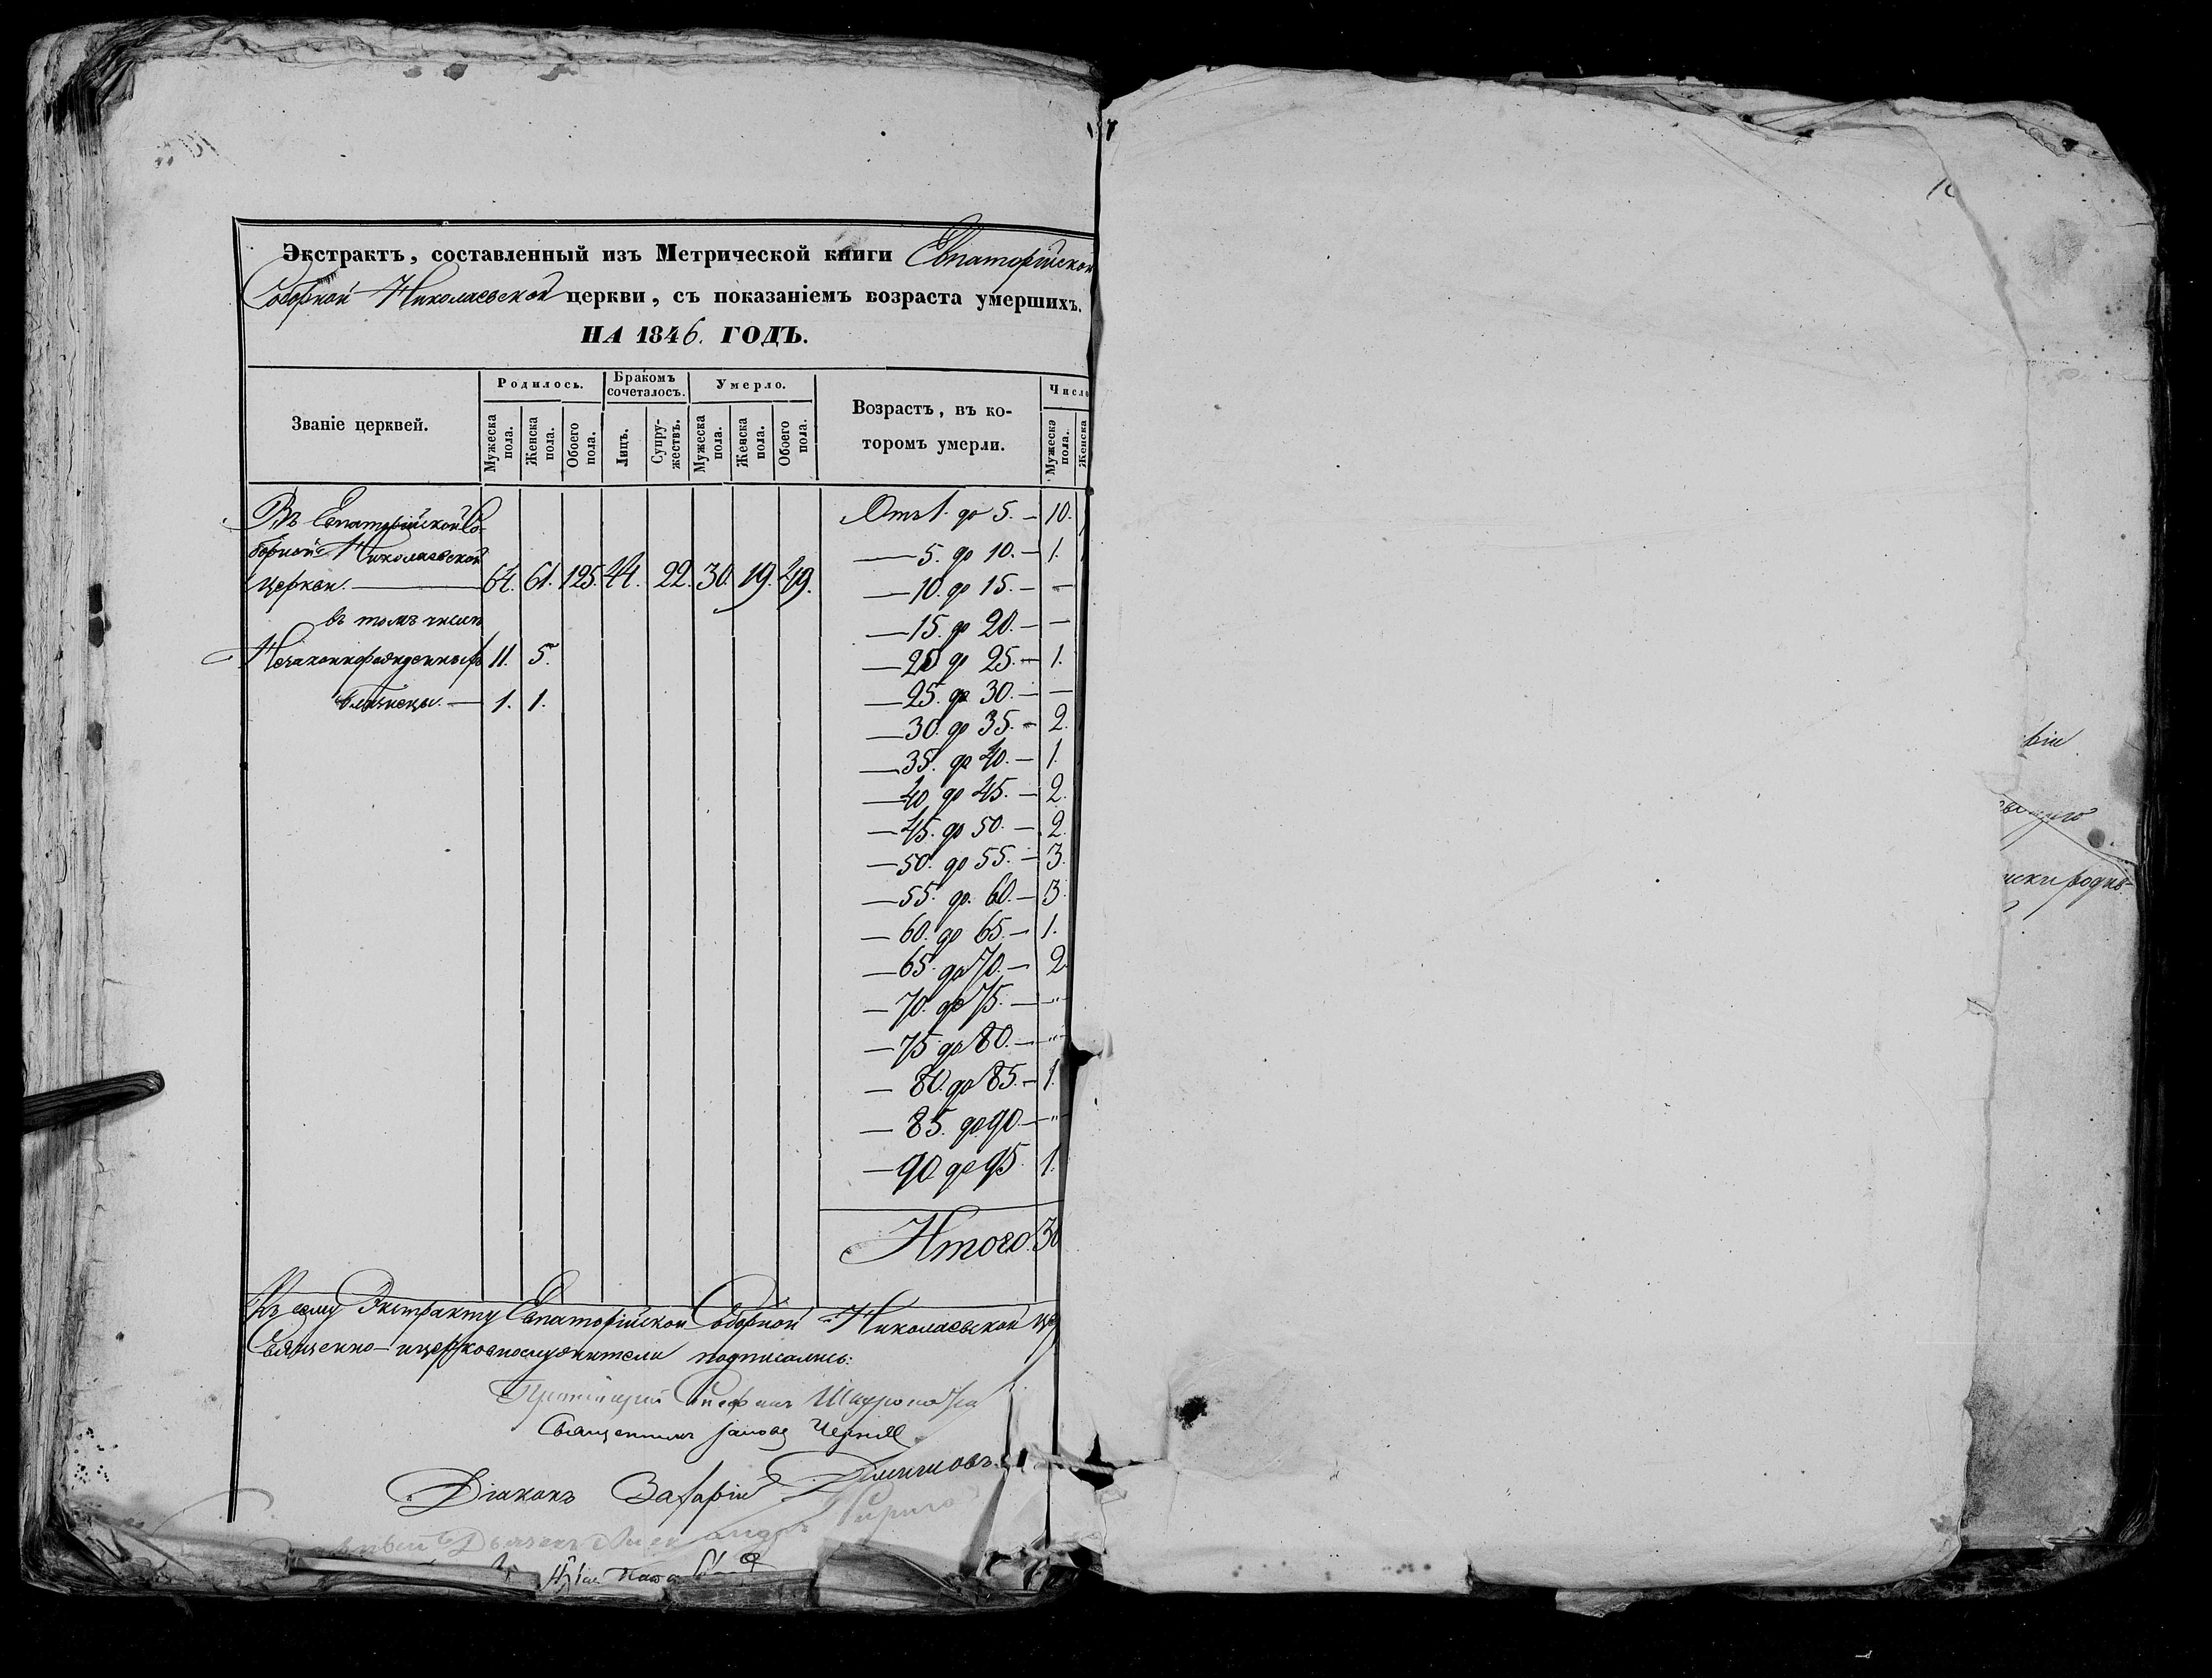 Экстрактъ, составленный изъ Метрической книги Евпаторійской
Соборной Николаевской церкви, съ показаніемъ возраста умершихъ.
НА 1846. ГОДЪ.
Званіе церквей.
Родилось.
Бракомъ сочеталось.
Умерло.
Возрастъ, въ ко-
торомъ умерли.
Число
Мужеска пола.
Женска пола.
Обоего пола.
Лицъ.
Супру-жествъ.
Мужеска пола.
Женска пола.
Обоего пола.
Мужеска пола.
Женска
Въ Евпаторійской Со-
борной Николаевской
церкви. — 64. 61. 125. 44. 22. 30. 19. 49.
въ томъ числѣ
Незаконнорожденныхъ 11. 5.
Близнецы. — 1. 1.
Отъ 1. до 5. — 10.
— 5. до 10. — 1.
— 10. до 15. — —
— 15. до 20. — —
— 20 до 25. — 1.
— 25. до 30. — —
— 30. до 35. — 2.
— 35. до 40. — 1.
— 40 до 45. — 2.
— 45. до 50. — 2.
— 50. до 55. — 3.
— 55. до 60. — 3.
— 60. до 65. — 1.
— 65. до 70. — 2.
— 70. до 75. — "
— 75 до 80. — "
— 80. до 85. — 1.
— 85. до 90. — "
— 90 до 95. 1.
Итого. 30
Къ сему Экстракту Евпаторійской Соборной Николаевской
Священно- и церковнослужители подписались:
Протоіерей
Священникъ
Діаконъ Захарій